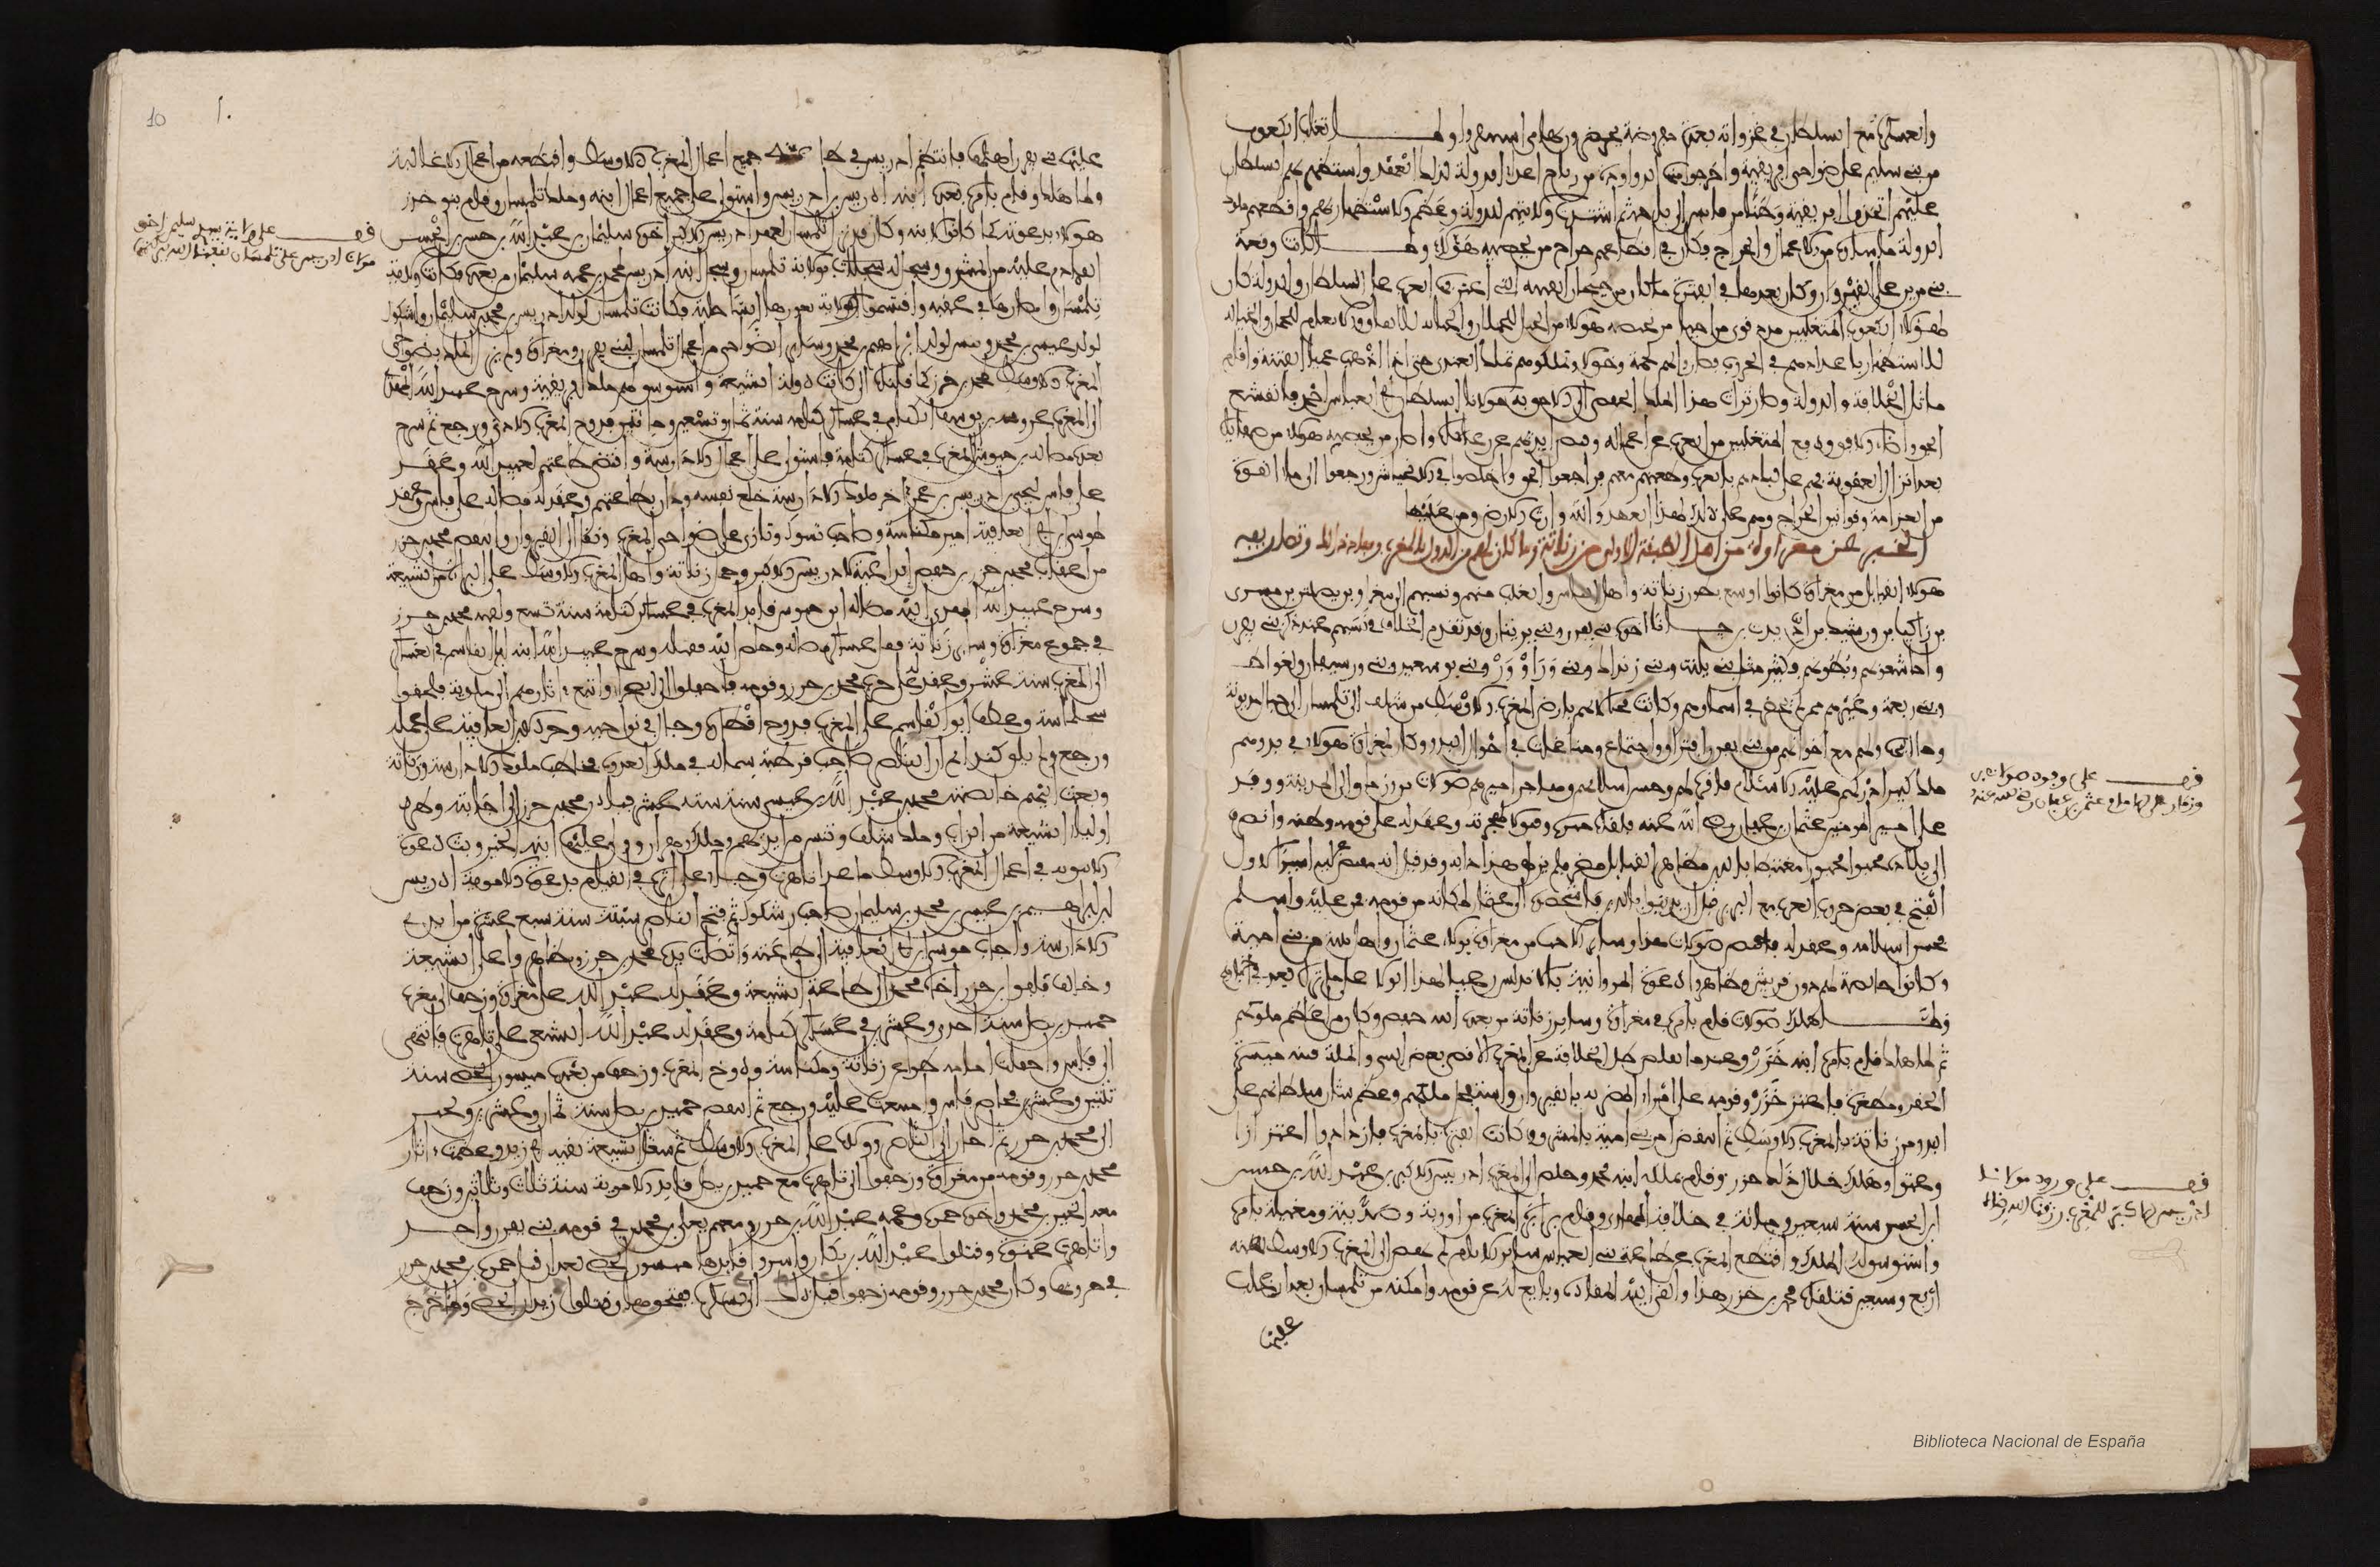 والعسكرة مع السلطان في غزواته بعدة مفروضة يحضرون بها متى استنفروا ولما تغلب الكعوب
من بني سليم على ضواحي افريقية واخرجوا منها الدواودة من رياح اعداء الدولة لذلك العهد واستظهر بهم السلطان
عليهم اتخذوا افريقية وطنا من قابس الى باجة ثم اشتدت ولايتهم للدولة وعظم الاستظهار بهم واقطعهم ملوك
الدولة ما شاءوه من الاعمال والخراج فكان في اقطاعهم خراج مرنجيصة هؤلاء ولما كانت وقعة
بني مرين على القيروان وكان بعدها في الفترة ما كان من طغيان الفتنة التي اعتز فيها العرب على السلطان والدولة كان
لهؤلاء الكعوب المتغلبين مدد قوي من احياء مرنجيصة هؤلاء من الخيل للحملان والجباية للانفاق والابل والحمولة
للاستظهار باعدادهم في الحرب فصاروا لهم لحمة وخولا وتملكوهم تملك العبيد حتى اذا اذهب الله الفتنة واقام
مائل الخلافة والدولة وصار تراث هذا الملك الحفصي الى الاحق به مولانا السلطان ابي العباس احمد فانقشع
الجو واضاء الافق ودفع المتغلبين من العرب عن اعماله وقبض ايديهم عن رعاياه واصار مرنجيصة هؤلاء من صفاياه
بعد انزال العقوبة بهم على لياذهم بالعرب وظعنهم معهم فراجعوا الحق واخلصوا في الانحياش ورجعوا الى ما الفوه
من الغرامة وقوانين الخراج وهم على ذلك لهذا العهد والله وارث الارض ومن عليها
الخبر عن مغراوة من اهل الطبقة الاولى من زناتة وما كان لهم من الدول بالمغرب ومبادئ ذلك وتصاريفه
هؤلاء القبائل من مغراوة كانوا اوسع بطون زناتة واهل الباس والغلب منهم ونسبهم الى مغراو بن يصلتين بن مسرى
بن زاكيا بن ورشيك بن الديرت بن جانا اخوة بني يفرن وبني يرنيان وقد تقدم الخلاف في نسبهم عند ذكر بني يفرن
واما شعوبهم وبطونهم فكثير مثل بني يلنت وبني زنداك وبني وراو ورتزمير وبني بو سعيد وبني ورسيفان ولغواط
وبني ريغة وغيرهم ممن لم يحضرني اسماؤهم وكانت محلاتهم بارض المغرب الاوسط من شلف الى تلمسان الى جبل مديونة
وما اليها ولهم مع اخوانهم من بني يفرن افتراق واجتماع ومناغات في احوال البدو وكان لمغراوة هؤلاء في بدوهم
ملك كبير ادركهم عليه الاسلام فاقره لهم وحسن اسلامهم وهاجر اميرهم صولات بن وزمار الى المدينة ووفد
على امير المومنين عثمان بن عفان رضي الله عنه فلقاه برا وقبولا لهجرته وعقد له على قومه ووطنه وانصرف
الى بلاده محبوا محبورا مغتبطا بالدين مظاهرا لقبائل مضر فلم يزل هذا دابه وقد قيل انه تقبض عليه اسيرا لاول
الفتح في بعض حروب العرب مع البربر قبل ان يدينوا بالدين فاشخصوه الى عثمان لمكانه من قومه فمن عليه واسلم
فحسن اسلامه وعقد له فاختص صولات هذا وسائر الاحياء من مغراوة بولاء عثمان واهل بيته من بني امية
وكانوا خاصة لهم دون قريش وظاهروا دعوة المروانية بالاندلس رعيا لهذا الولاء على ما تراه بعد في اخبارهم
ولما هلك صولات قام بامره في مغراوة وسائر زناتة من بعده ابنه حفص وكان من اعظم ملوكهم
ثم لما هلك قام بامره ابنه خزر وعندما تقلص ظل الخلافة عن المغرب الاقصى بعض الشيء واظلت فتنة ميسرة
الحقير ومطغرة فاعتز خزر وقومه على امراء المضرية بالقيروان واستفحل ملكهم وعظم شان سلطانهم على
البدو من زناتة بالمغرب الاوسط ثم انتقض امر بني امية بالمشرق وكانت الفتنة بالمغرب فازدادوا اعتزازا
وعتوا وهلك خلال ذلك خزر وقام بملكه ابنه محمد وخلص الى المغرب ادريس الاكبر بن عبد الله بن حسن
بن الحسن سنة سبعين وماية في خلافة الهادي وقام برابرة المغرب من اوربة وصدينة ومغيلة بامره
واستوسق له الملك واقتطع المغرب عن طاعة بني العباس سائر الايام ثم نهض الى المغرب الاوسط سنة
اربع وسبعين فتلقاه محمد بن خزر هذا والقى اليه المقادة وبايع له عن قومه وامكنه من تلمسان بعد ان غلب
عليها
قف على وفود صولات بن
وزمار على الامام عثمن بن عفان رضي الله عنه
قف على ورود مولانا
ادريس الاكبر للمغرب رزقنا الله رضاه
10
عليها بني يفرن اهلها فانتظم لادريس في طاعته جميع اعمال المغرب الاوسط واقطعه من اعمال الاغالبة
ولما هلك وقام بامره بعده ابنه ادريس بن ادريس واستولى على جميع اعمال ابيه وملك تلمسان وقام بنو خزر
هؤلاء بدعوته كما كانوا لابيه وكان قد نزل تلمسان لعهد ادريس الاكبر اخوه سليمان بن عبد الله بن حسن بن الحسن
القادم عليه من المشرق وسجل له بولاية تلمسان وسجل ابنه ادريس لمحمد بن عمه سليمان من بعده فكانت ولاية
تلمسان وامصارها في عقبه واقتسموا ولاية ثغورها الساحلية فكانت تلمسان لولد ادريس بن محمد بن سليمان وارشكول
لولد عيسى بن محمد وتنس لولد ابراهيم بن محمد وسائر الضواحي من اعمال تلمسان لبني يفرن ومغراوة ولم يزل الملك بضواحي
المغرب الاوسط لمحمد بن خزر كما قلناه الى ان كانت دولة الشيعة واستوسق لهم ملك افريقية وسرح عبيد الله المهدي
الى المغرب عروبة بن يوسف الكتامي في عساكر كتامة سنة ثمان وتسعين ومائتين فدوخ المغرب الادنى ورجع ثم سرح
بعده مصالة بن حبوس الى المغرب في عساكر كتامة فاستولى على اعمال الادارسة واقتضى طاعتهم لعبيد الله وعقد
على فاس ليحيى بن ادريس بن عمر اخر ملوك الادارسة خلع نفسه ودان بطاعتهم وعقد له مصالة على فاس وعقد
لموسى بن ابي العافية امير مكناسة وصاحب تسول وتازى على ضواحي المغرب وقفل الى القيروان وانتقض محمد بن خزر
من اعقاب محمد بن خزر بن حفص الداعية لادريس الاكبر وحمل زناتة واهل المغرب الاوسط على البراءة من الشيعة
وسرح عبيد الله المهدي اليه مصالة بن حبوس قائد المغرب في عساكر كتامة سنة تسع ولقيه محمد بن خزر
في جموع مغراوة وسائر زناتة ففل عساكر مصالة وخلص اليه فقتله وسرح عبيد الله ابنه ابا القاسم في العساكر
الى المغرب سنة عشر وعقد له على حرب محمد بن خزر وقومه فاجفلوا الى الصحراء واتبع اثارهم الى ملوية فلحقوا
بسجلماسة وعطف ابو القاسم على المغرب فدوخ اقطاره وجال في نواحيه وجدد لابن ابي العافية على عمله
ورجع ولم يلق كيدا ثم ان الناصر صاحب قرطبة سما له امل في ملك العدوة فخاطب ملوك الادارسة وزناتة
وبعث اليهم خاصته محمد بن عبيد الله بن ابي عيسى سنة ست عشرة فبادر محمد بن خزر الى اجابته وطرد
اولياء الشيعة من الزاب وملك شلف وتنس من ايديهم وملك وهران وولى عليها ابنه الخير وبث دعوة
الاموية في اعمال المغرب الاوسط ما عدا تاهرت وبدا على اثره في القيام بدعوة الاموية ادريس
بن ابراهيم بن عيسى بن محمد بن سليمان صاحب ارشكول ثم فتح الناصر سبتة سنة سبع عشرة من ايدي
الادارسة واجاز موسى بن ابي العافية الى طاعته واتصلت يده بمحمد بن خزر وتظاهروا على الشيعة
وخالف فلفول بن خزر اخاه محمدا الى طاعة الشيعة وعقد له عبيد الله على مغراوة وزحف الى المغرب
حميد بن يصل سنة احدى وعشرين في عساكر كتامة وعقد له عبيد الله الشيعي على تاهرت فانتهى
الى فاس واجفلت امامه ظواعن زناتة ومكناسة ودوخ المغرب وزحف من بعده ميسور الخصي سنة
ثنتين وعشرين فحاصر فاس وامتنعت عليه ورجع ثم انتقض حميد بن يصل سنة ثمان وعشرين وتحيز
الى محمد بن خزر ثم اجاز الى الناصر وولاه على المغرب الاوسط ثم شغل الشيعة بفتنة ابي يزيد وعظمت اثار
محمد بن خزر وقومه من مغراوة وزحفوا الى تاهرت مع حميد بن يصل قائد الاموية سنة ثلاث وثلاثين وزحف
معه الخير بن محمد واخوه حمزة وعمه عبد الله بن خزر ومعهم يعلى بن محمد في قومه بني يفرن واخذوا
تاهرت عنوة وقتلوا عبد الله بن بكار واسروا قائدها ميسور الخصي بعد ان قتل حمزة بن محمد بن خزر
في حروبها وكان محمد بن خزر وقومه زحفوا قبل ذلك الى بسكرة ففتحوها وقتلوا زيدان الخصي ولما خرج
قف على ولاية سيدي سليمن اخو
مولانا ادريس على تلمسان نفعنا الله ببركتهم
Biblioteca Nacional de España